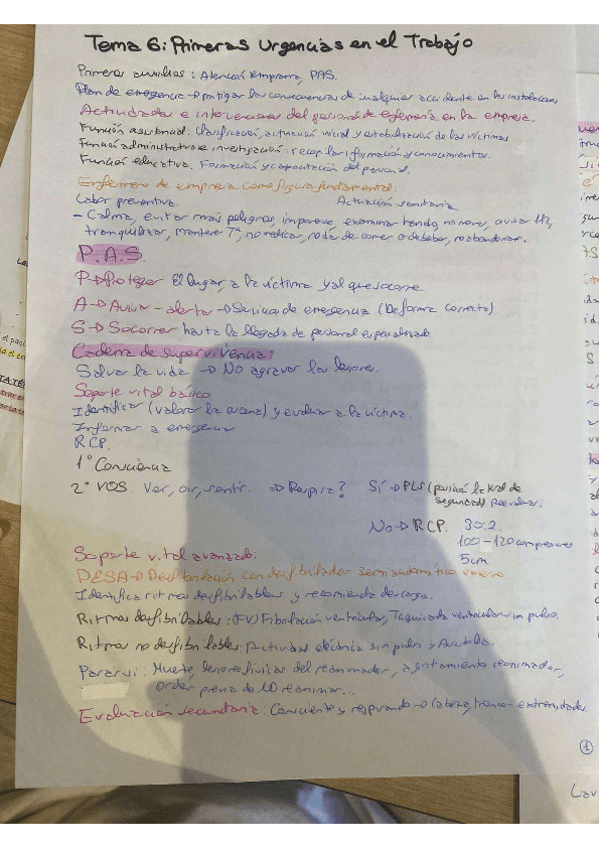 Tema 6: Primeras Urgencias en el Trabajo
Primeros auxilios: Atención temprana, PAS.
Plan de emergencia → mitigar las consecuencias de cualquier accidente en las instalaciones
Actividades e intervenciones del personal de enfermería en la empresa.
Función asistencial: Clasificación, actuación inicial y estabilización de las víctimas
Función administrativa e investigación: recopilar información y conocimientos.
Función educativa. Formación y capacitación del personal.
Enfermero de empresa como figura fundamental:
Labor preventiva. Actuación sanitaria
- Calma, evitar más peligros, examinar no mover, avisar 112,
tranquilizar, mantener Tª, no medicar, no dar de comer o de beber, no abandonar.
P.A.S.
P → Proteger El lugar, a la víctima y al que socorre
A → Avisar - alertar → Servicios de emergencia (De forma correcta)
S → Socorrer hasta la llegada de personal especializado
Cadena de supervivencia:
Salvar la vida → No agravar las lesiones.
Soporte vital básico
Identificar (valorar la escena) y evaluar a la víctima.
Informar a emergencia
RCP.
1º Consciencia
2º VOS. Ver, oir, sentir. ⇒ Respira? Sí → PLS (posición lateral de
seguridad) Reevaluar.
No → RCP. 30:2.
100-120 compresiones
5cm.
Soporte vital avanzado:
DESA → Desfibrilación con desfibrilador semiautomático externo
Identifica ritmos desfibrilables y recomienda descarga.
Ritmos desfibrilables: (FV) Fibrilación ventricular, Taquicardia ventricular sin pulso.
Ritmos no desfibrilables: Actividad eléctrica sin pulso y Asistolia.
Parar si: Muerte, lesiones físicas del reanimador, agotamiento reanimador,
orden previa de NO reanimar...
Evaluación secundaria: Consciente y respirando → Cabeza, tronco - extremidades.
1